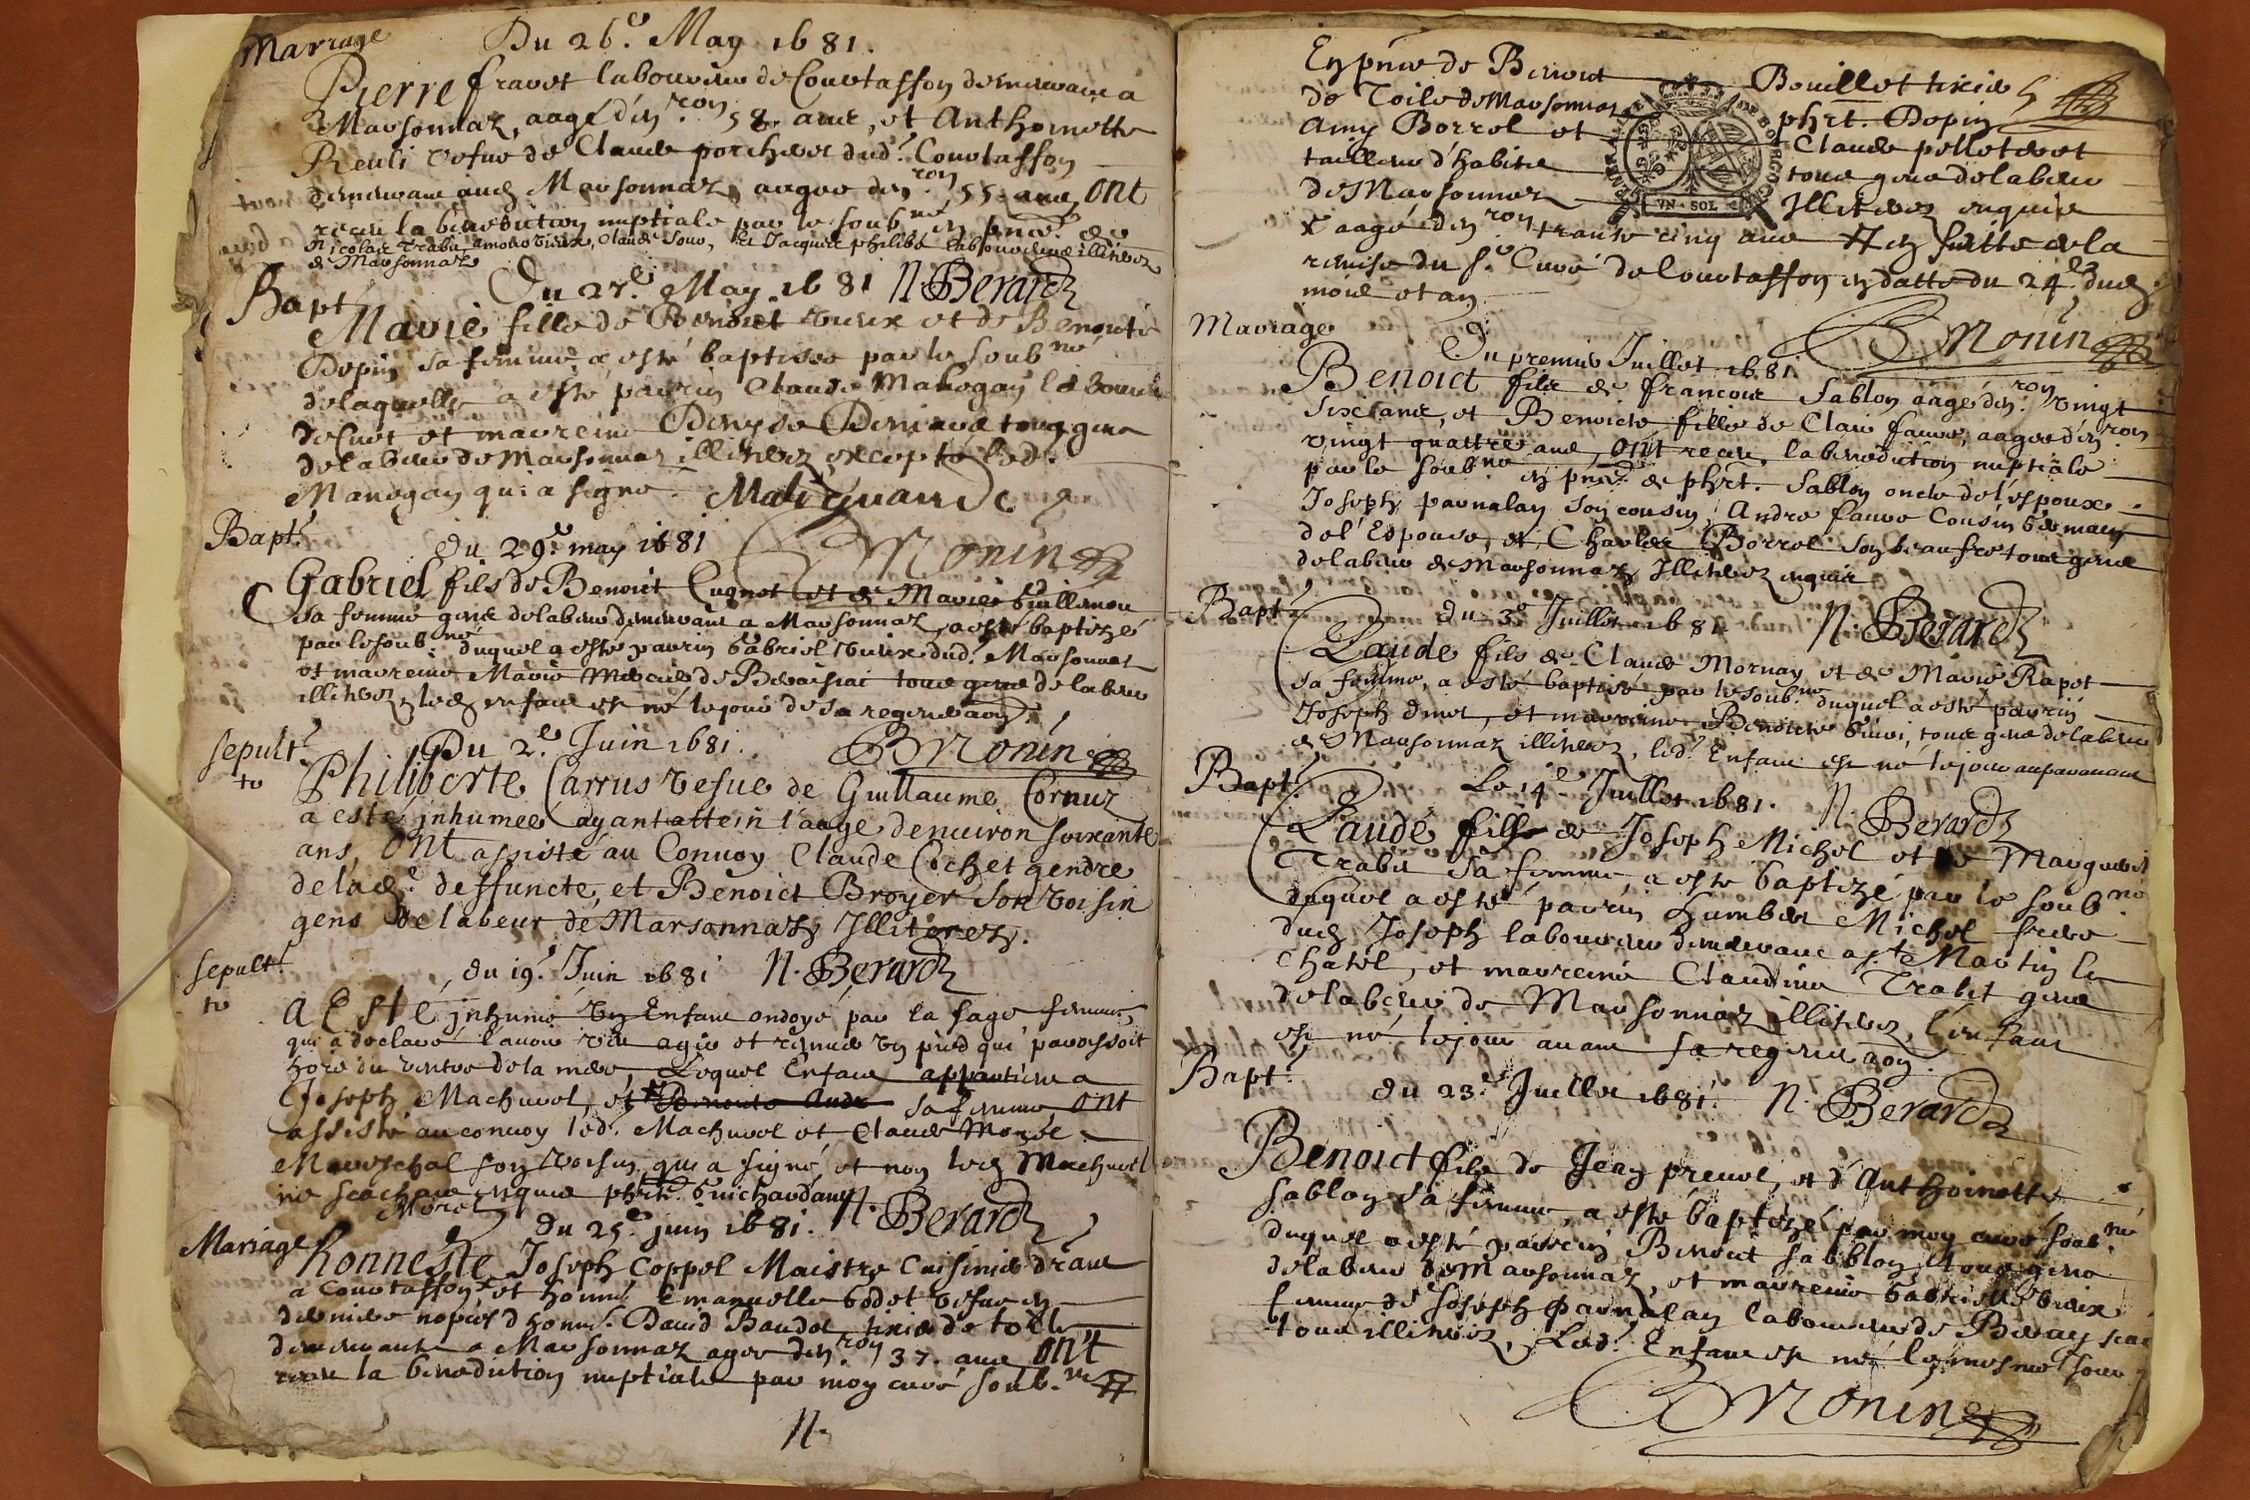 Marriage
Du 26.e May 1681.
Pierre fravet laboureur de Courtasson demeurant a
Marsonnaz, aagé d'en.ron 58. ans, et Anthoinette
vefue de Claude porcher dud.t Courtasson
demeurant aud. Marsonnaz, aagee d'en.ron 55. ans, ont
receu la benediction nuptiale par le soub.né en pnce. de
Nicolas Trabit
de Marsonnaz
Du 27.e May 1681 N. Berard
Bapt.
Marie fille de Benoict vieux et de Benoite
Dopin sa femme a esté baptisee par le soub.né
de laquelle a esté parrin Claude Malogay
et marreine Denyse tous gens
de labeur de Marsonnaz illiterez excepté led.
Manogay qui a signé.
Bapt.
du 29.e may 1681
Monin
Gabriel fils de Benoict Cugnet et de Marie Guillemou
sa femme gens de labeur demeurant a Marsonnaz, a esté baptizé
par le soub.né duquel a esté parrin Gabriel vieux dud. Marsonnaz
et marreine Marie de tous gens de labeur
illiterez, led. enfant est né le jour de sa regeneraon.
sepult.re
Du 2.e Juin 1681.
Monin
Philiberte Carrus vefue de Guillaume Cornuz
a esté jnhumeé ayant attein l'aage denuiron soixante
ans, ont assisté au Conuoy Claude Cochet gendre
de lad.e deffuncte, et Benoict Broyer son voisin
gens de labeur de Marsonnaz, Illiterez.
sepult.re
du 19.e Juin 1681 N. Berard
A Esté jnhumé vn Enfant ondoyé par la sage femme,
qui a declaré l'auoir veu agir et remuer vn pied qui paroissoit
hors du ventre de la mere, Lequel Enfant appartient a
Joseph Machurel, et Benoite sa femme, ont
assisté au conuoy led. Machurel et Claude Morel
Mareschal son voisin qui a signé, et non led. Machurel
ne scachant enquis
Morel N. Berard
Mariage
du 25.e juin 1681.
honneste Joseph Coppel Maistre Cuisinier
a Courtasson, et honn. Emanuelle Godet vefue en
dernieres nopces d'honn. Dauid Baudet de toille
demeurante a Marsonnaz agee d'en.ron 37. ans ont
receu la benediction nuptiale par moy curé soub.né
N.
En pnce de Benoict Bouillet
de Toile de Marsonnaz phrt. Dopin
Amy Borrel et Claude pelletier et
tailleur d'habits tous gens de labeur
de Marsonnaz Illiterez enquis
aagé d'en.ron trante cinq ans en suitte de la
remise du S.r Curé de Courtasson en datte du 24.e dud.
mois et an
VN · SOL
Monin
Mariage
Du premier Juillet 1681.
Benoict fils de francois Sablon aagé d'en.ron vingt
six ans, et Benoicte fille de Clair faure, aagee d'en.ron
vingt quattre ans, ont receu la benediction nuptiale
par le soub.né en pnce. de phrt. Sablon oncle de l'espoux
Joseph parnalan son cousin, Andre faure Cousin Germain
de l'Espouse, et Charles Borrel son beaufre tous gens
de labeur de Marsonnaz Illiterez enquis
Bapt.
du 3.e Juillet 1681 N. Berard
Claude fils de Claude Mornay et de Marie Rapet
sa femme, a esté baptisé par le soub.né duquel a esté parrin
Joseph, et marreine Benoicte tous gens de labeur
de Marsonnaz illiterez, led.t Enfant est né le jour auparauant
Bapt.
Le 14.e Juillet 1681. N. Berard
Claude fils de Joseph Michel et de Marguerite
Trabit sa femme, a esté baptizé par le soub.né
duquel a esté parrin Humbert Michel frere
dud. Joseph laboureur demeurant a S.t Martin le
Chatel, et marreine Claudine Trabit gens
de labeur de Marsonnaz illiterez, l'enfant
est né le jour auant sa regeneraon.
Bapt.
du 23.e Juillet 1681. N. Berard
Benoict fils de Jean preuel, et d'Anthoinette
sablon sa femme, a esté baptizé par moy curé soub.né
duquel a esté parrein Benoict sabblon tous gens
de labeur de Marsonnaz, et marreine Gabrielle vieux
femme de Joseph parnalan laboureur de
tous illiterez, Led.t Enfant est né le mesme jour
Monin